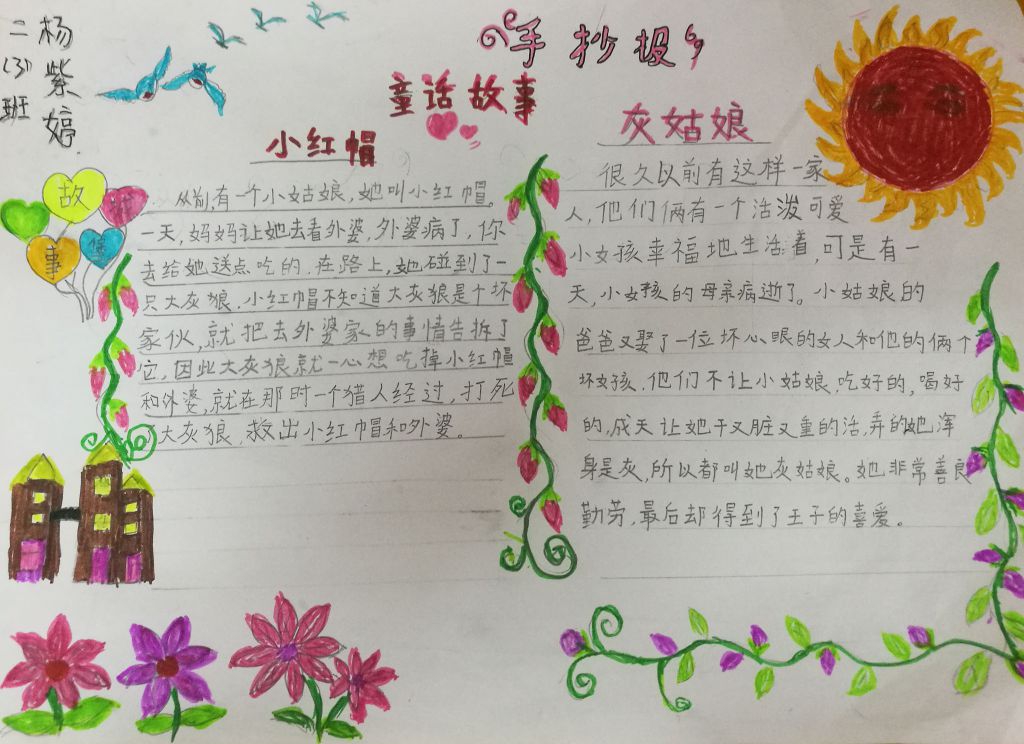 二(3)班
杨紫婷
手抄报
童话故事
故
事
小红帽
从前,有一个小姑娘,她叫小红帽。
一天,妈妈让她去看外婆,外婆病了,你
去给她送点吃的,在路上,她碰到了一
只大灰狼,小红帽不知道大灰狼是个坏
家伙,就把去外婆家的事情告拆了
它,因此大灰狼就一心想吃掉小红帽
和外婆,就在那时一个猎人经过,打死
大灰狼,救出小红帽和外婆。
灰姑娘
很久以前有这样一家
人,他们俩有一个活泼可爱
小女孩幸福地生活着,可是有一
天,小女孩的母亲病逝了。小姑娘的
爸爸又娶了一位坏心眼的女人和他的俩个
坏女孩,他们不让小姑娘吃好的,喝好
的,成天让她干又脏又重的活,弄的她浑
身是灰,所以都叫她灰姑娘。她非常善良
勤劳,最后却得到了王子的喜爱。